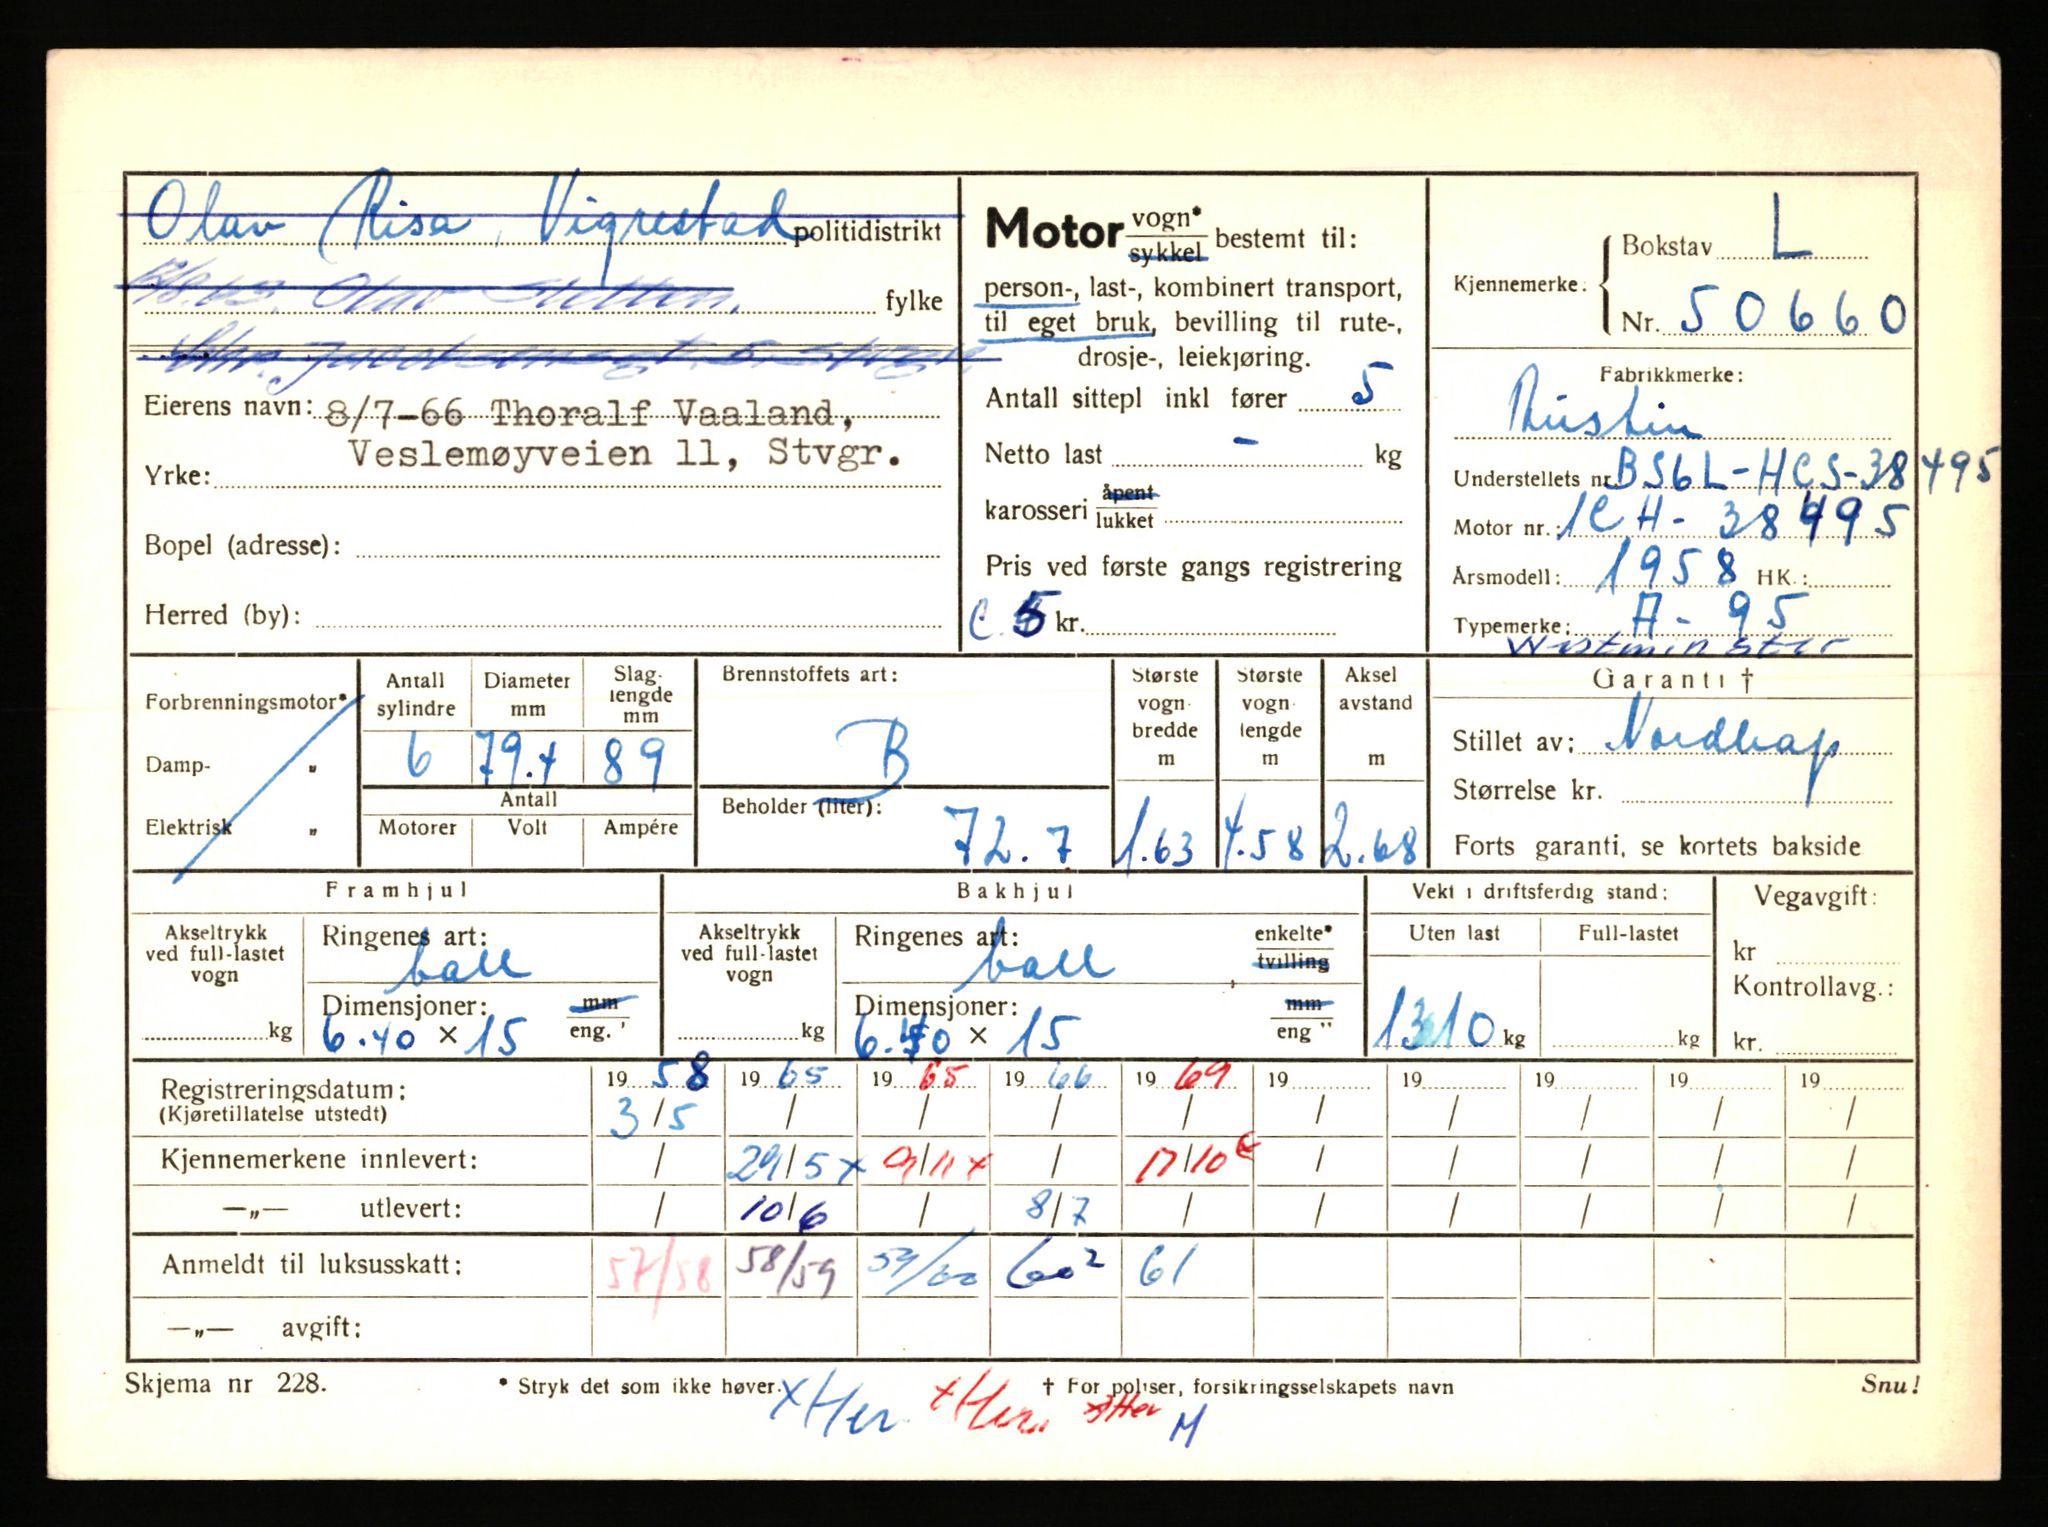 Olav Risa, Vigrestad politidistrikt
Olav fylke
Eierens navn: 8/7-66 Thoralf Vaaland,
Veslemøyveien 11, Stvgr.
Yrke:
Bopel (adresse):
Herred (by):
Motor vogn* sykkel bestemt til:
person-, last-, kombinert transport,
til eget bruk, bevilling til rute-,
drosje-, leiekjøring.
Antall sittepl inkl fører 5
Netto last - kg
karosseri åpent lukket
Pris ved første gangs registrering
C. 5 kr.
Kjennemerke: Bokstav L
Nr. 50660
Fabrikkmerke:
Austin
Understellets nr. BS6L-HCS-38495
Motor nr.: 1CH-38495
Årsmodell: 1958 HK.:
Typemerke: A-95
Westminster
Forbrenningsmotor*
Damp- „
Elektrisk „
Antall sylindre 6
Diameter mm 79.4
Slaglengde mm 89
Antall
Motorer Volt Ampére
Brennstoffets art:
B
Beholder (liter): 72.7
Største vogn bredde m 1.63
Største vogn lengde m 4.58
Aksel avstand m 2.68
Garanti †
Stillet av: Nordkap
Størrelse kr.
Forts garanti, se kortets bakside
Framhjul
Akseltrykk ved full-lastet vogn kg
Ringenes art: ball
Dimensjoner: mm eng."
6.40 × 15
Bakhjul
Akseltrykk ved full-lastet vogn kg
Ringenes art: ball enkelte* tvilling
Dimensjoner: mm eng"
6.40 × 15
Vekt i driftsferdig stand:
Uten last Full-lastet
1310 kg kg
Vegavgift:
kr
Kontrollavg.:
kr.
Registreringsdatum: 1958 1965 1965 1966 1969 19 19 19 19 19
(Kjøretillatelse utstedt) 3/5 / / / / / / / / /
Kjennemerkene innlevert: / 29/5 x 9/11 x / 17/10 / / / / /
—„— utlevert: / 10/6 / 8/7 / / / / / /
Anmeldt til luksusskatt: 57/58 58/59 59/60 60² 61
—„— avgift:
Skjema nr 228. * Stryk det som ikke høver. † For poliser, forsikringsselskapets navn Snu!
x Her x Her x Her M